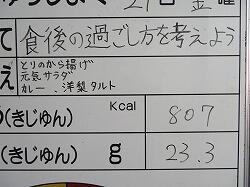 27日 金曜
て 食後の過ごし方を考えよう
え とりのから揚げ
元気サラダ
カレー、洋梨タルト
(きじゅん) Kcal 807
(きじゅん) g 23.3